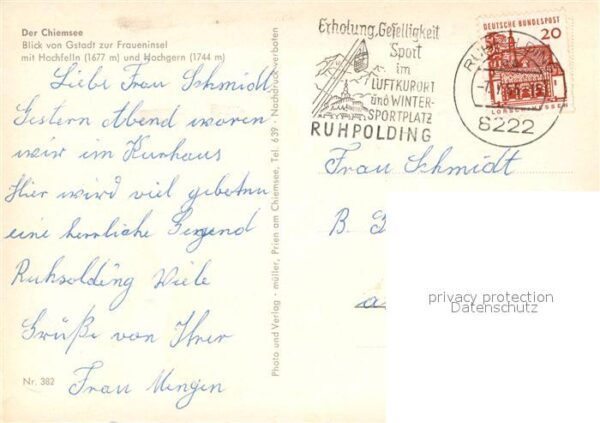 Der Chiemsee
Blick von Gstadt zur Fraueninsel
mit Hochfelln (1677 m) und Hochgern (1744 m)
Liebe Frau Schmidt
Gestern Abend waren
wir im Kurhaus
Hier wird viel geboten
eine herrliche Gegend
Ruhpolding Viele
Grüße von Ihrer
Frau Mengen
Nr. 382
Photo und Verlag - müller, Prien am Chiemsee, Tel. 639 - Nachdruck verboten
Erholung, Geselligkeit
Sport
im
LUFTKURORT
und WINTER-
SPORTPLATZ
RUHPOLDING
8222
DEUTSCHE BUNDESPOST
20
Frau Schmidt
B.
privacy protection
Datenschutz